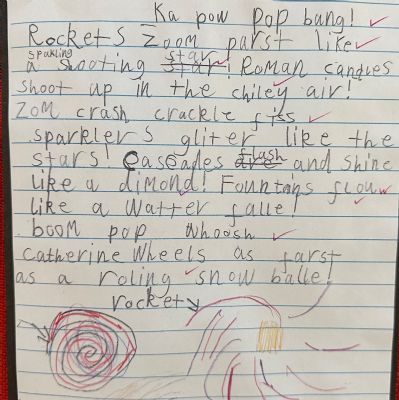 Ka pow pop bang!
Rockets zoom parst like
a sparkling shooting star! Roman candues
shoot up in the chiley air!
Zom crash crackle fiss
sparklers gliter like the
stars! Cascades flash and shine
like a dimond! Fountains flow
like a watter falle!
boom pop whoosh
catherine wheels as farst
as a roling snow balle!
rocket